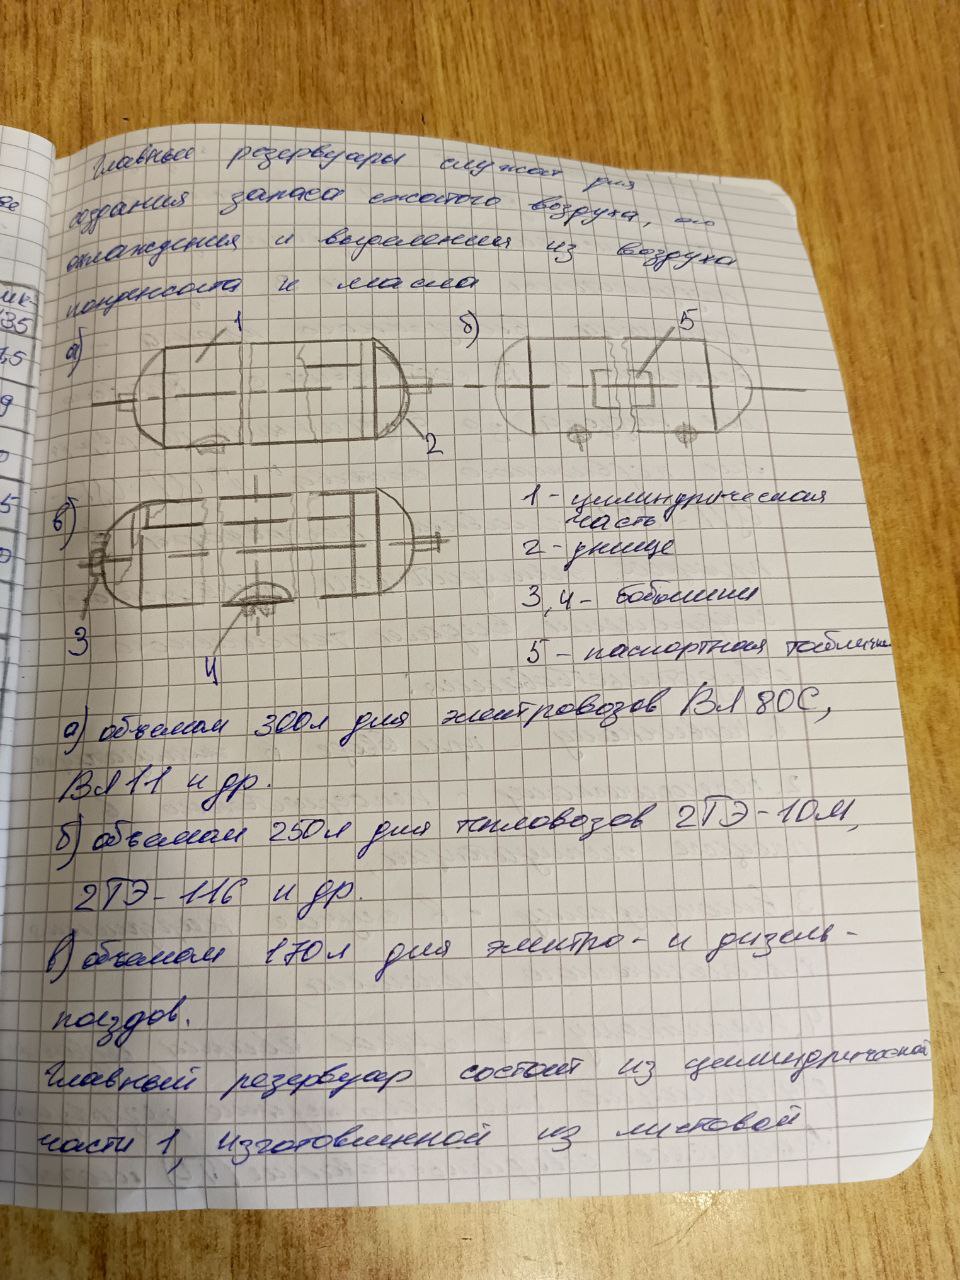 Главные резервуары служат для
создания запаса сжатого воздуха, его
охлаждения и выделения из воздуха
конденсата и масла
а) 1 2
б) 5
в) 3 4
1 - цилиндрическая
часть
2 - днище
3, 4 - бобышки
5 - паспортная таблички
а) объемом 300л для электровозов ВЛ 80С,
ВЛ11 и др.
б) объемом 250л для тепловозов 2ТЭ-10М,
2ТЭ-116 и др.
в) объемом 170л для электро- и дизель-
поездов.
Главный резервуар состоит из цилиндрической
части 1, изготовленной из листовой
ик-
135
7,5
9
0
5
0